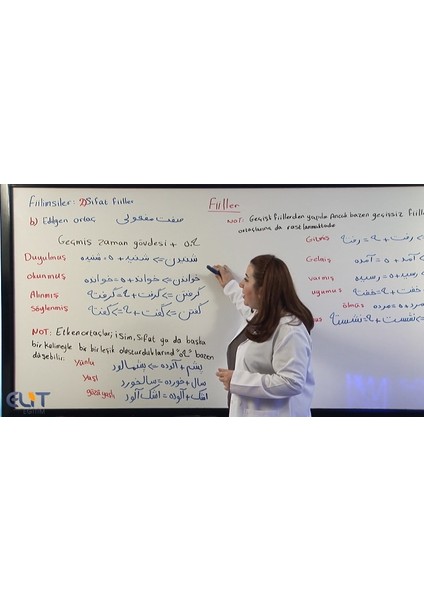 Fiilimsiler: 2) Sıfat fiiller
b) Edilgen ortaç صفت مفعولی
Geçmiş zaman gövdesi + ه
Duyulmuş شنیدن => شنید + ه = شنیده
okunmuş خواندن => خواند + ه = خوانده
Alınmış گرفتن => گرفت + ه = گرفته
Söylenmiş گفتن => گفت + ه = گفته
NOT: Etken ortaçlar; isim, sıfat ya da başka
bir kelimeyle bir birleşik oluşturduklarında "ه" bazen
düşebilir.
Yünlü پشم + آلوده => پشم آلود
yaşlı سال + خورده = سالخورد
gözü yaşlı اشک + آلوده = اشک آلود
Fiiller
NOT: Geçişli fiillerden yapılır Ancak bazen geçişsiz fiil
ortaçlarına da rastlanmaktadır
Gitmiş => رفت + ه = رفته
Gelmiş => آمد + ه = آمده
varmış رسید + ه = رسیده
uyumuş خفت + ه = خفته
ölmüş مرد + ه = مرده
=> نشست + ه = نشسته
ELIT